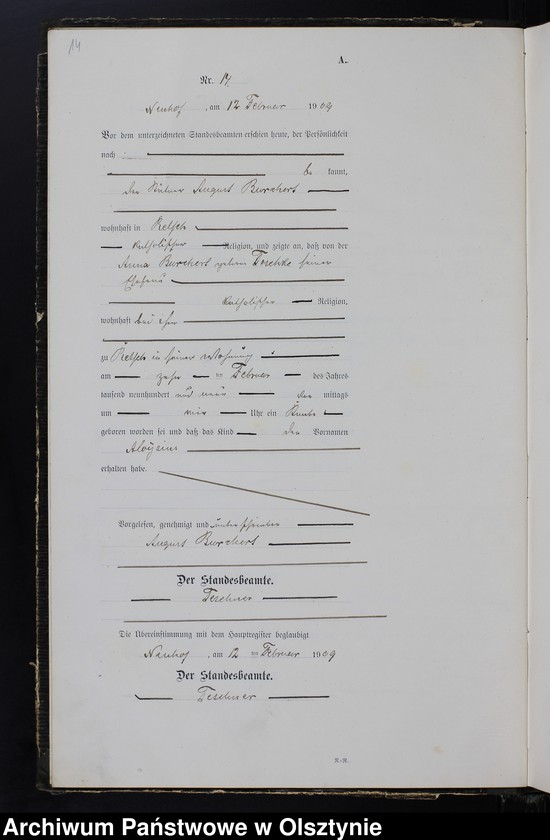 14
A.
Nr. 14.
Neuhof, am 12 Februar 1909
Vor dem unterzeichneten Standesbeamten erschien heute, der Persönlichkeit
nach
be kannt,
der August Burchert
wohnhaft in Retsch
katholischer Religion, und zeigte an, daß von der
Anna Burchert geborene Teschke seiner
Ehefrau
katholischer Religion,
wohnhaft bei ihm
zu Retsch in seiner Wohnung
am zehn ten Februar des Jahres
tausend neunhundert und neun mittags
um Uhr ein Knabe
geboren worden sei und daß das Kind den Vornamen
Aloysius
erhalten habe.
Vorgelesen, genehmigt und unterschrieben
August Burchert
Der Standesbeamte.
Teschner
Die Übereinstimmung mit dem Hauptregister beglaubigt
Neuhof, am 12 ten Februar 1909
Der Standesbeamte.
Teschner
R.-R.
Archiwum Państwowe w Olsztynie